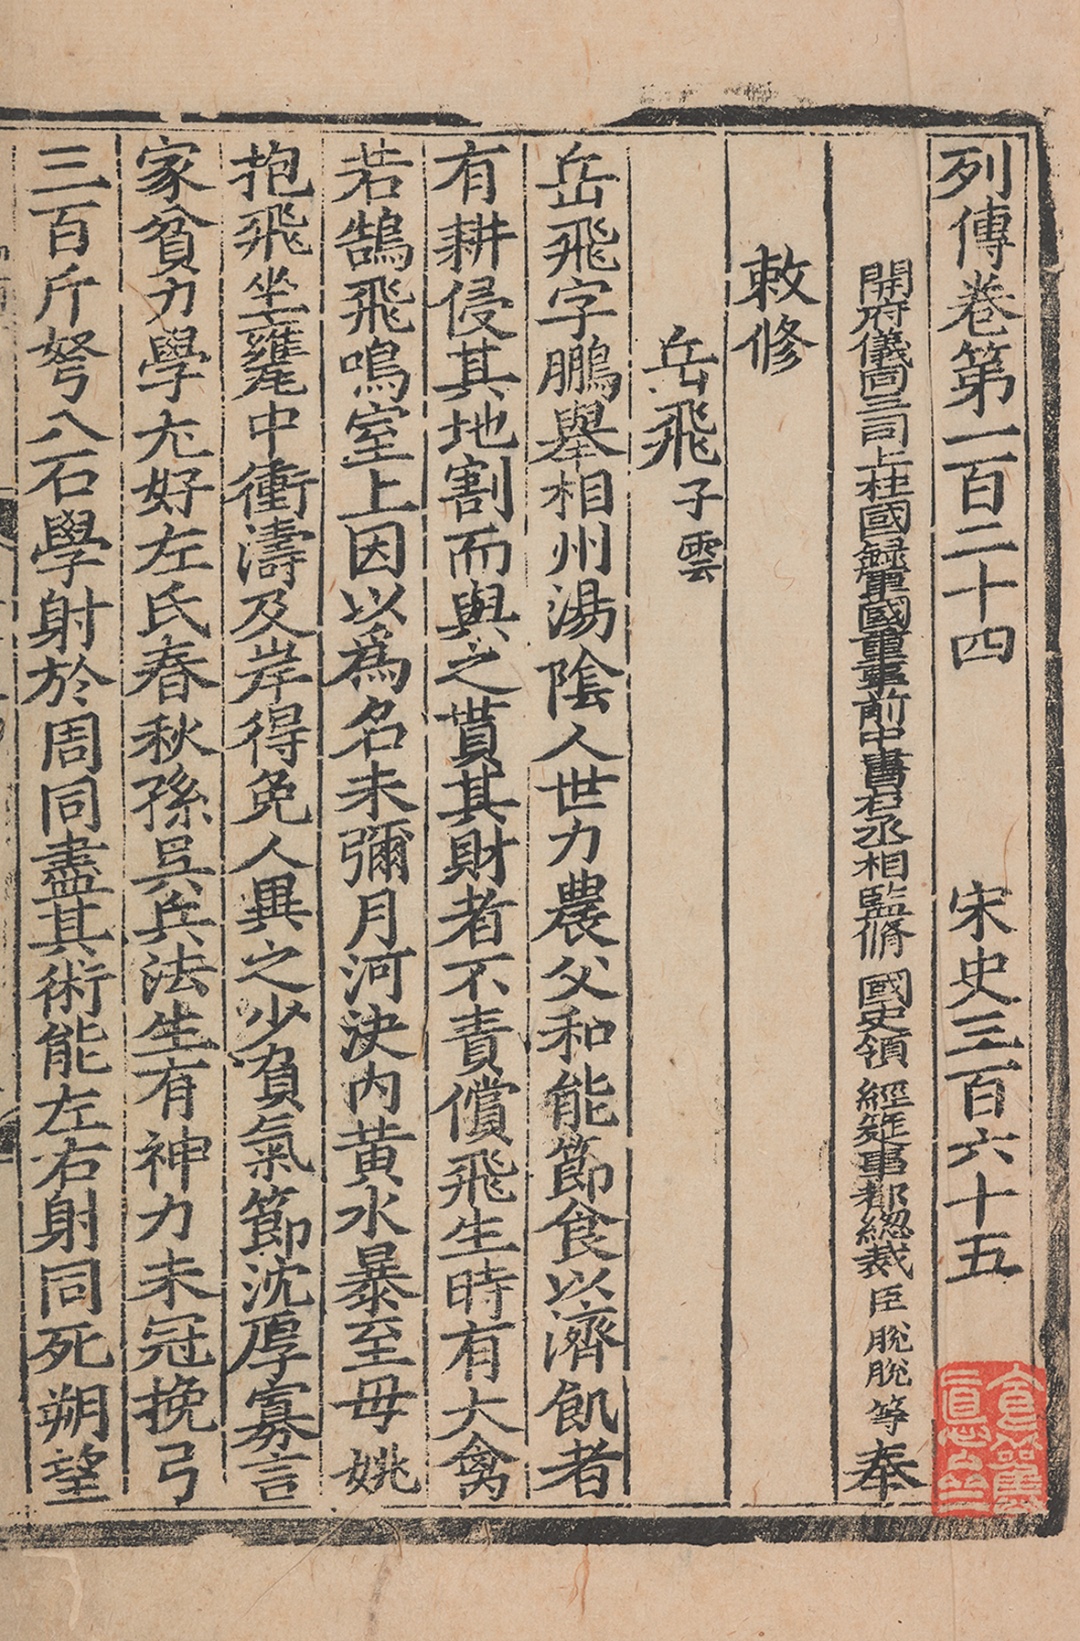 列傳卷第一百二十四　宋史三百六十五
開府儀同三司上柱國錄軍國重事前中書右丞相監脩　國史領　經筵事都總裁臣脫脫等奉
敕修
岳飛子雲
岳飛字鵬舉相州湯陰人世力農父和能節食以濟飢者
有耕侵其地割而與之貰其財者不責償飛生時有大禽
若鵠飛鳴室上因以爲名未彌月河決內黃水暴至母姚
抱飛坐甕中衝濤及岸得免人異之少負氣節沈厚寡言
家貧力學尤好左氏春秋孫吳兵法生有神力未冠挽弓
三百斤弩八石學射於周同盡其術能左右射同死朔望